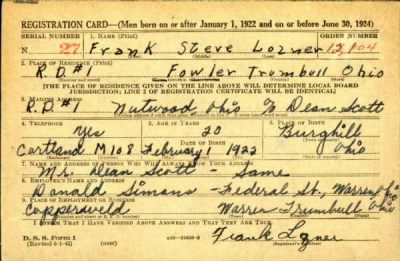 REGISTRATION CARD—(Men born on or after January 1, 1922 and on or before June 30, 1924)
SERIAL NUMBER 1. NAME (Print) ORDER NUMBER
N 27 Frank Steve Lozner 12,104
(First) (Middle) (Last)
2. PLACE OF RESIDENCE (Print)
R.D.#1 Fowler Trumbull Ohio
[THE PLACE OF RESIDENCE GIVEN ON THE LINE ABOVE WILL DETERMINE LOCAL BOARD
JURISDICTION; LINE 2 OF REGISTRATION CERTIFICATE WILL BE IDENTICAL]
3. MAILING ADDRESS
R.D.#1 Nutwood Ohio % Dean Scott
4. TELEPHONE 5. AGE IN YEARS 6. PLACE OF BIRTH
Yes 20 Burghill
DATE OF BIRTH
Cortland M108 February 1 1922 Ohio
7. NAME AND ADDRESS OF PERSON WHO WILL ALWAYS KNOW YOUR ADDRESS
Mr. Dean Scott - Same
8. EMPLOYER'S NAME AND ADDRESS
Donald Simons - Federal St., Warren, Ohio
9. PLACE OF EMPLOYMENT OR BUSINESS
Copperweld Warren Trumbull Ohio
I AFFIRM THAT I HAVE VERIFIED ABOVE ANSWERS AND THAT THEY ARE TRUE.
D. S. S. Form 1
(Revised 6-1-42)
Frank Lozner